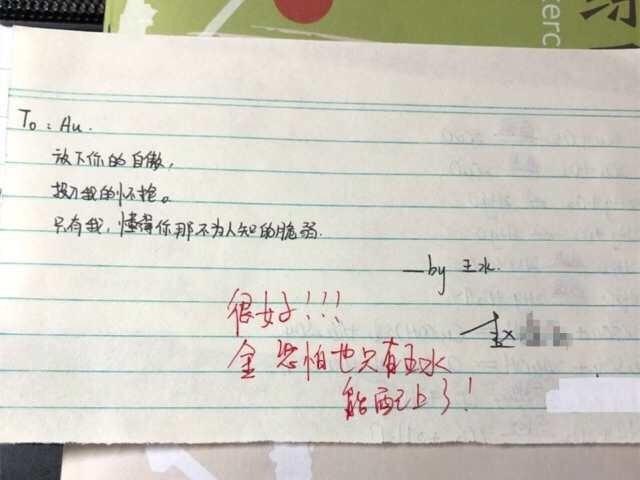 To：Au.
放下你的自傲，
投入我的怀抱。
只有我，懂得你那不为人知的脆弱.
—by 王水.
很好！！！
金恐怕也只有王水
能配上了！